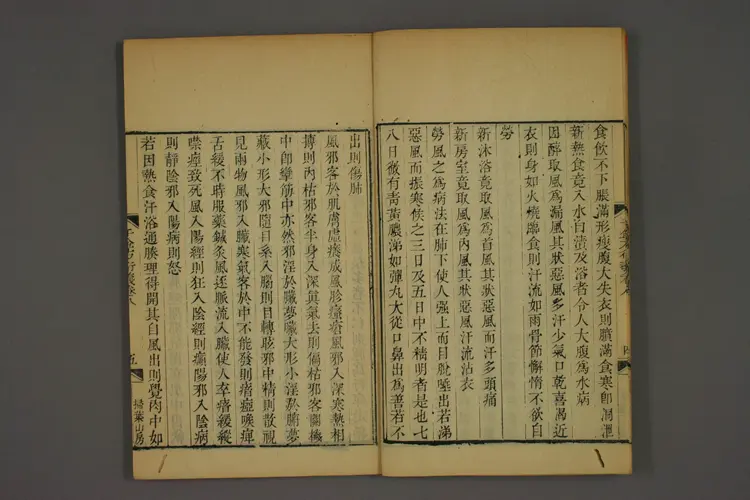 食飲不下脹滿形瘦腹大失衣則䐜滿食寒即洞泄
新熱食竟入水自漬及浴者令人大腹為水病
因醉取風為漏風其狀惡風多汗少氣口乾喜渴近
衣則身如火燒臨食則汗流如雨骨節懈惰不欲自
勞
新沐浴竟取風為首風其狀惡風而汗多頭痛
新房室竟取風為內風其狀惡風汗流沾衣
勞風之為病法在肺下使人强上而目脫唾出若涕
惡風而振寒候之三日及五日中不精明者是也七
八日微有青黃膿涕如彈丸大從口鼻出為善若不
出則傷肺
風邪客於肌膚虛癢成風胗瘙瘡風邪入深寒熱相
搏則內枯邪客半身入深真氣去則偏枯邪客關機
中即攣筋中亦然邪淫於臟夢臟大形小淫於腑夢
臟小形大邪隨目系入腦則目轉眩邪中精則散視
見兩物風邪入臟寒氣客於中不能發則瘖瘂喉痺
舌緩不時服藥鍼灸風逐脈流入臟使人卒瘖緩縱
噤痙致死風入陽經則狂入陰經則癲陽邪入陰病
則靜陰邪入陽病則怒
若因熱食汗浴通腠理得開其自風出則覺肉中如
五
掃葉山房